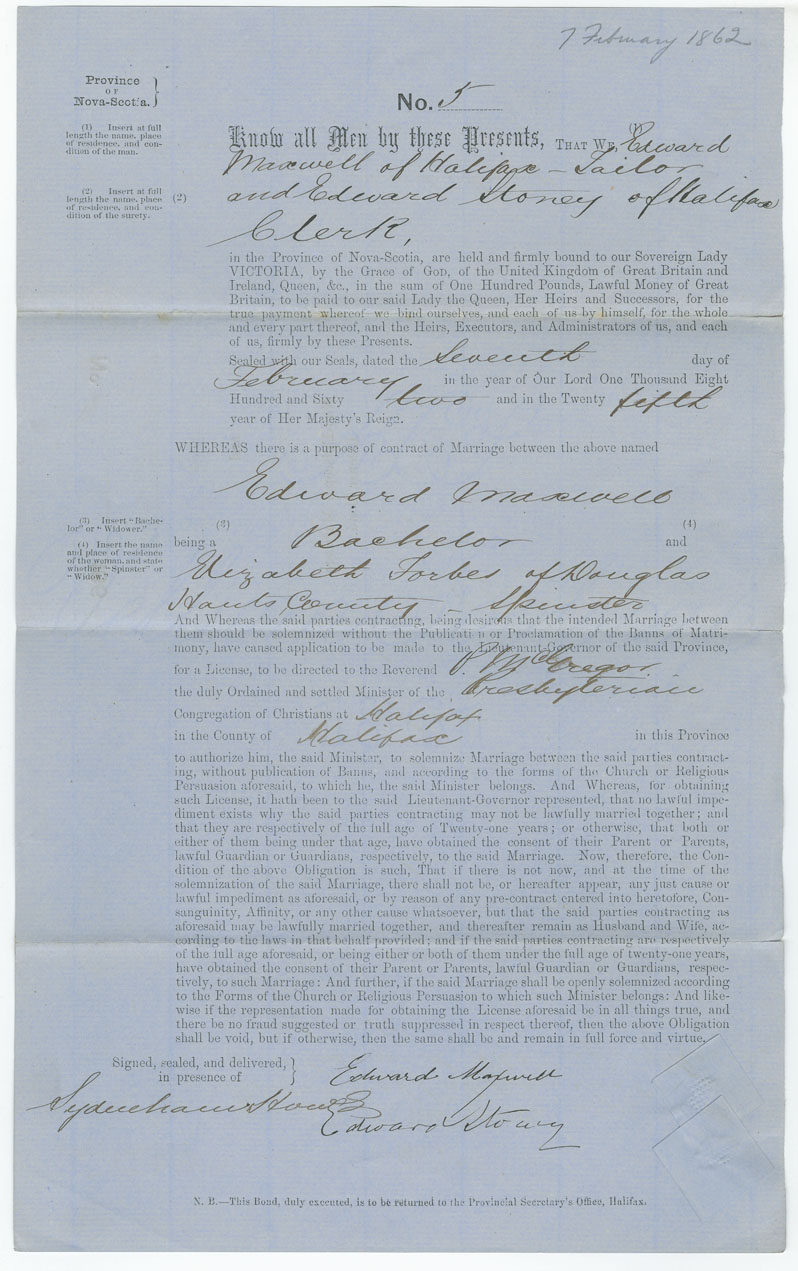 7 February 1862
Province
OF
Nova-Scotia.
No. 5
(1) Insert at full
length the name, place
of residence, and con-
dition of the man.
(1)
Know all Men by these Presents, THAT WE, Edward
Maxwell of Halifax - Tailor
(2) Insert at full
length the name, place
of residence, and con-
dition of the surety.
(2) and Edward Stoney of Halifax
Clerk,
in the Province of Nova-Scotia, are held and firmly bound to our Sovereign Lady
VICTORIA, by the Grace of GOD, of the United Kingdom of Great Britain and
Ireland, Queen, &c., in the sum of One Hundred Pounds, Lawful Money of Great
Britain, to be paid to our said Lady the Queen, Her Heirs and Successors, for the
true payment whereof we bind ourselves, and each of us by himself, for the whole
and every part thereof, and the Heirs, Executors, and Administrators of us, and each
of us, firmly by these Presents.
Sealed with our Seals, dated the Seventh day of
February in the year of Our Lord One Thousand Eight
Hundred and Sixty two and in the Twenty fifth
year of Her Majesty's Reign.
WHEREAS there is a purpose of contract of Marriage between the above named
Edward Maxwell
(3) Insert "Bache-
lor" or "Widower."
(4) Insert the name
and place of residence
of the woman, and state
whether "Spinster" or
"Widow."
(3) (4)
being a Bachelor and
Elizabeth Forbes of Douglas
Hants County - Spinster
And Whereas the said parties contracting, being desirous that the intended Marriage between
them should be solemnized without the Publicati n or Proclamation of the Banns of Matri-
mony, have caused application to be made to the Lieutenant-Governor of the said Province,
for a License, to be directed to the Reverend P. McGregor
the duly Ordained and settled Minister of the Presbyterian
Congregation of Christians at Halifax
in the County of Halifax in this Province
to authorize him, the said Minister, to solemnize Marriage between the said parties contract-
ing, without publication of Banns, and according to the forms of the Church or Religious
Persuasion aforesaid, to which he, the said Minister belongs. And Whereas, for obtaining
such License, it hath been to the said Lieutenant-Governor represented, that no lawful impe-
diment exists why the said parties contracting may not be lawfully married together; and
that they are respectively of the full age of Twenty-one years; or otherwise, that both or
either of them being under that age, have obtained the consent of their Parent or Parents,
lawful Guardian or Guardians, respectively, to the said Marriage. Now, therefore, the Con-
dition of the above Obligation is such, That if there is not now, and at the time of the
solemnization of the said Marriage, there shall not be, or hereafter appear, any just cause or
lawful impediment as aforesaid, or by reason of any pre-contract entered into heretofore, Con-
sanguinity, Affinity, or any other cause whatsoever, but that the said parties contracting as
aforesaid may be lawfully married together, and thereafter remain as Husband and Wife, ac-
cording to the laws in that behalf provided; and if the said parties contracting are respectively
of the full age aforesaid, or being either or both of them under the full age of twenty-one years,
have obtained the consent of their Parent or Parents, lawful Guardian or Guardians, respec-
tively, to such Marriage: And further, if the said Marriage shall be openly solemnized according
to the Forms of the Church or Religious Persuasion to which such Minister belongs: And like-
wise if the representation made for obtaining the License aforesaid be in all things true, and
there be no fraud suggested or truth suppressed in respect thereof, then the above Obligation
shall be void, but if otherwise, then the same shall be and remain in full force and virtue.
Signed, sealed, and delivered,
in presence of
Edward Maxwell
Sydenham Howe
Edward Stoney
N. B.—This Bond, duly executed, is to be returned to the Provincial Secretary's Office, Halifax.